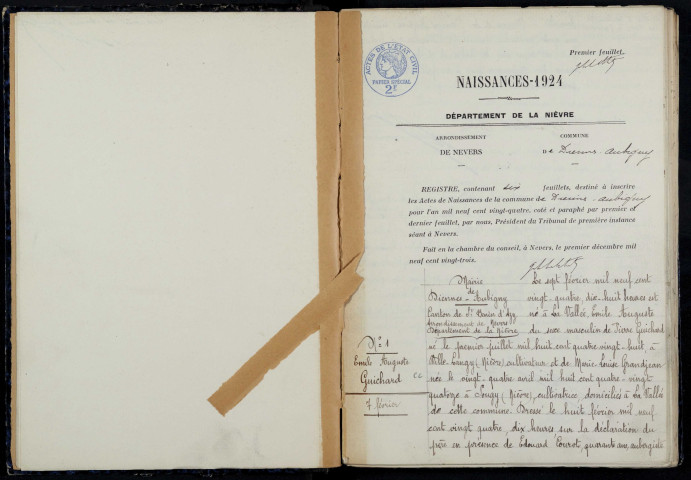 ACTES DE L'ETAT CIVIL
PAPIER SPÉCIAL
2F
Premier feuillet.
NAISSANCES-1924
DÉPARTEMENT DE LA NIÈVRE
ARRONDISSEMENT
DE NEVERS
COMMUNE
DE Diennes-Aubigny
REGISTRE, contenant six feuillets, destiné à inscrire
les Actes de Naissances de la commune de Diennes-Aubigny
pour l'an mil neuf cent vingt-quatre, coté et paraphé par premier et
dernier feuillet, par nous, Président du Tribunal de première instance
séant à Nevers.
Fait en la chambre du conseil, à Nevers, le premier décembre mil
neuf cent vingt-trois.
Mairie
de
Diennes-Aubigny
Canton de St Benin d'Azy
Arrondissement de Nevers
Département de la Nièvre
No 1
Emile Auguste
Guichard
7 février
Le sept février mil neuf cent
vingt-quatre, dix-huit heures est
né à La Vallée, Emile Auguste
du sexe masculin de Pierre Guichard
né le premier juillet mil huit cent quatre-vingt-huit, à
Ville-Langy (Nièvre) cultivateur et de Marie-Louise Grandjean
née le vingt-quatre avril mil huit cent quatre-vingt
quatorze à Cougy (Nièvre), cultivatrice, domiciliés à La Vallée
de cette commune. Dressé le huit février mil neuf
cent vingt quatre, dix heures sur la déclaration du
père en présence de Edouard Courot, quarante ans, aubergiste